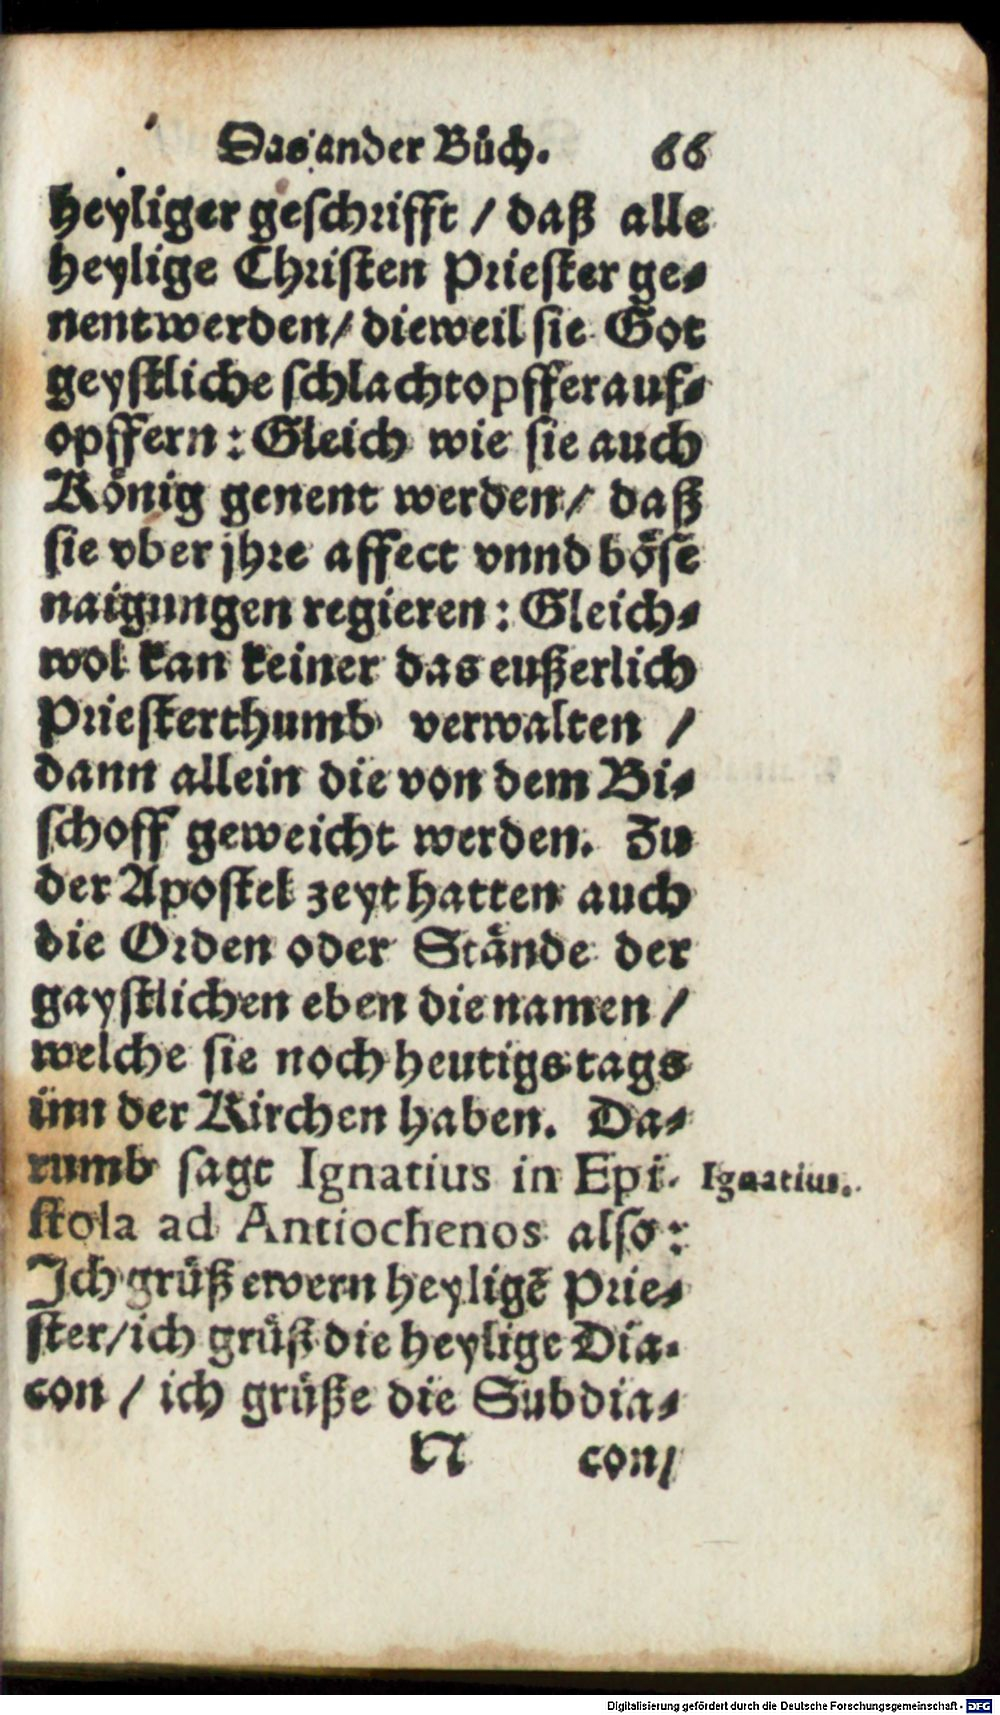 Das ander Bůch. 66
heyliger geschrifft / daß alle
heylige Christen Priester ge-
nent werden / dieweil sie Got
geystliche schlachtopffer auf-
opffern : Gleich wie sie auch
König genent werden / daß
sie vber jhre affect vnnd böse
naigungen regieren : Gleich-
wol kan keiner das eußerlich
Priesterthumb verwalten /
dann allein die von dem Bi-
schoff geweicht werden. Zu
der Apostel zeyt hatten auch
die Orden oder Stände der
gaystlichen eben die namen /
welche sie noch heutigs tags
inn der Kirchen haben. Da-
rumb sagt Ignatius in Epi-
stola ad Antiochenos also :
Ich grüß ewern heyligē Prie-
ster / ich grüß die heylige Dia-
con / ich grüße die Subdia-
Ignatius.
N con /
Digitalisierung gefördert durch die Deutsche Forschungsgemeinschaft - DFG